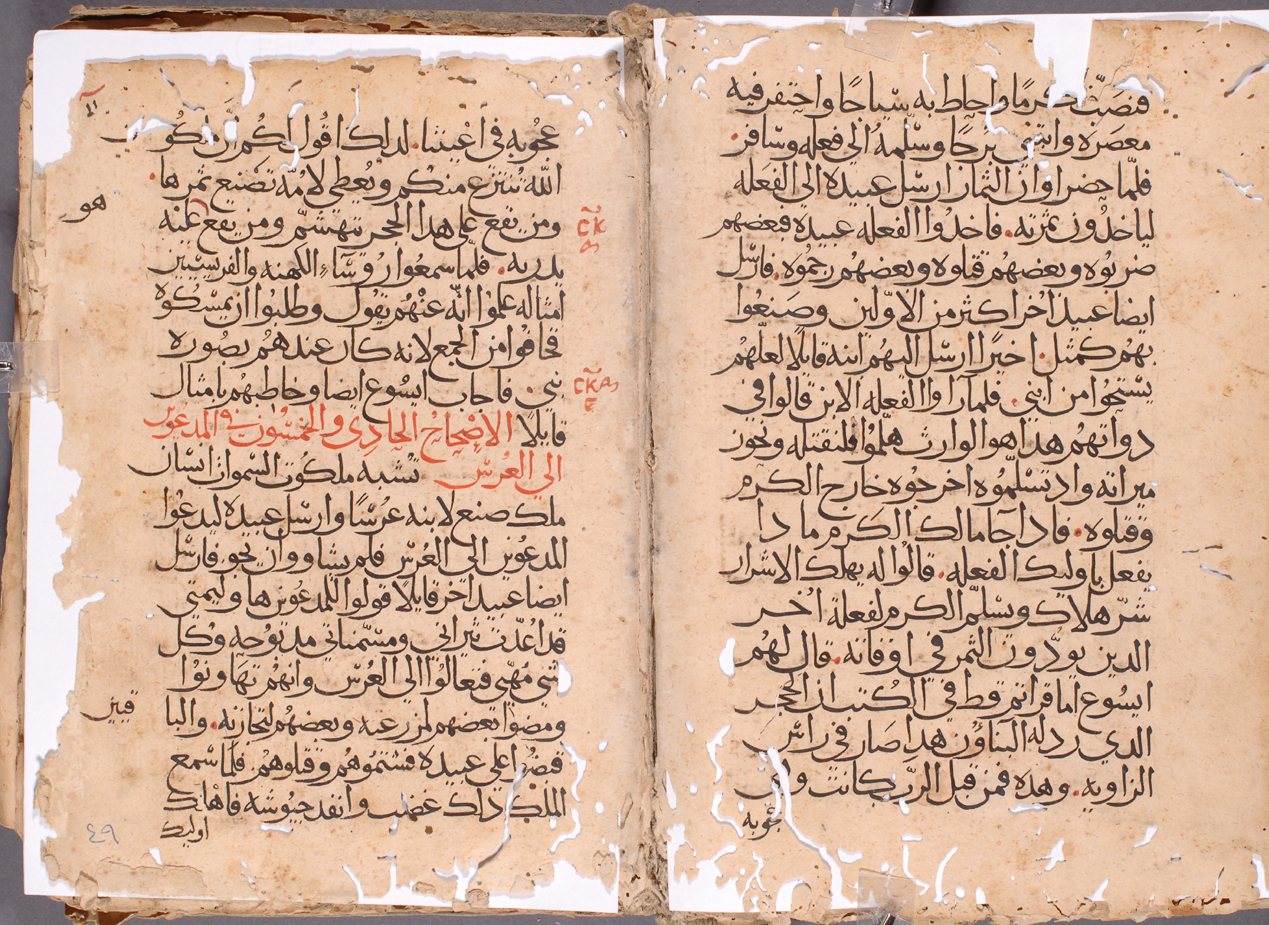 فنصب كرمًا واحاط به سياجًا واحتفر فيه
معصره وابتنى برجًا وسلمه الى فعله وسافر.
فلمّا حضر اوان الثمار ارسل عبيده الى الفعله
لياخدون ثمرته. فاخدوا الفعله عبيده فبعضهم
ضربوه وبعضهم قتلوه وبعضهم رجموه. فارسل
ايضا عبيدًا اُخر اكثر من الاوّلين وصنعوا
بهم كمثل. اخيرًا ارسل اليهم ابنه قايلًا لعلّهم
يستحوا من ابني. فلما راوا الفعله الابن قالوا في
دواتهم هدا هوا الوارث هلمّوا فلنقتله ونحوز
ميراثه واد تسلّموه اخرجوه خارج الكرم
وقتلوه. فادا جا مالك الكرم ما دا
يفعل باوليك الفعله. قالوا له يهلك الاشرار
شرّ هلاك ويسلّم الكرم لفعلة اُخر
الدين يودّون الثمر في اوقاته. قال لهم
ايسوع اما قراتم قط في الكتب ان الحجر
الدي ردله البناوُن هدا صار في راس
الزاويه. وهده فمن قبل الربّ كانت وهي
عجُوبه
عجُوبه في اعيننا. لدلك اقول لكم ان ملكوت
اللّه تنتزع منكم ويعطى لامّة تصنع ثمرها.
هو
ومن يقع على هدا الحجر يتهشّم ومن يقع عليه
يدريه. فلمّا سمعوا روُساء الكهنه والفريسيين
امثاله علموا انّه عنهُم يقول وطلبوا ان يمسكوه
فخافوا من الجمع لانه كان عندهُم بصُورة
نبي. فاجاب ايسوع ايضا وخاطبهُم بامثال
قايلًا الاصحاح الحادي والخمسُون في المدعوين
الى العُرس تُشبه ملكوت السموات انسان
ملك صنع لابنه عُرسًا وارسل عبيده ليدعُوا
المدعُوين الى العُرس فلم يشاووا ان يجو فارسل
ايضا عبيد اخر قايلا قولوا للمدعُوين ها وليمتي
قد اعُدّت ثيراني ومسمّناتي مدبُوحه وكُل
شي مُهيّي فتعالوا الى العُرس وانهُم تهاونُوا
ومضوا بعضهم لمزرعته وبعضهُم لتجارته. والبا
قيين
قبضُوا على عبيده فشتمُوهُم وقتلوهُم. فلمّا سمع
الملك داك غضب وانفد جيُوشه فاهلك
اوليك
٤٩